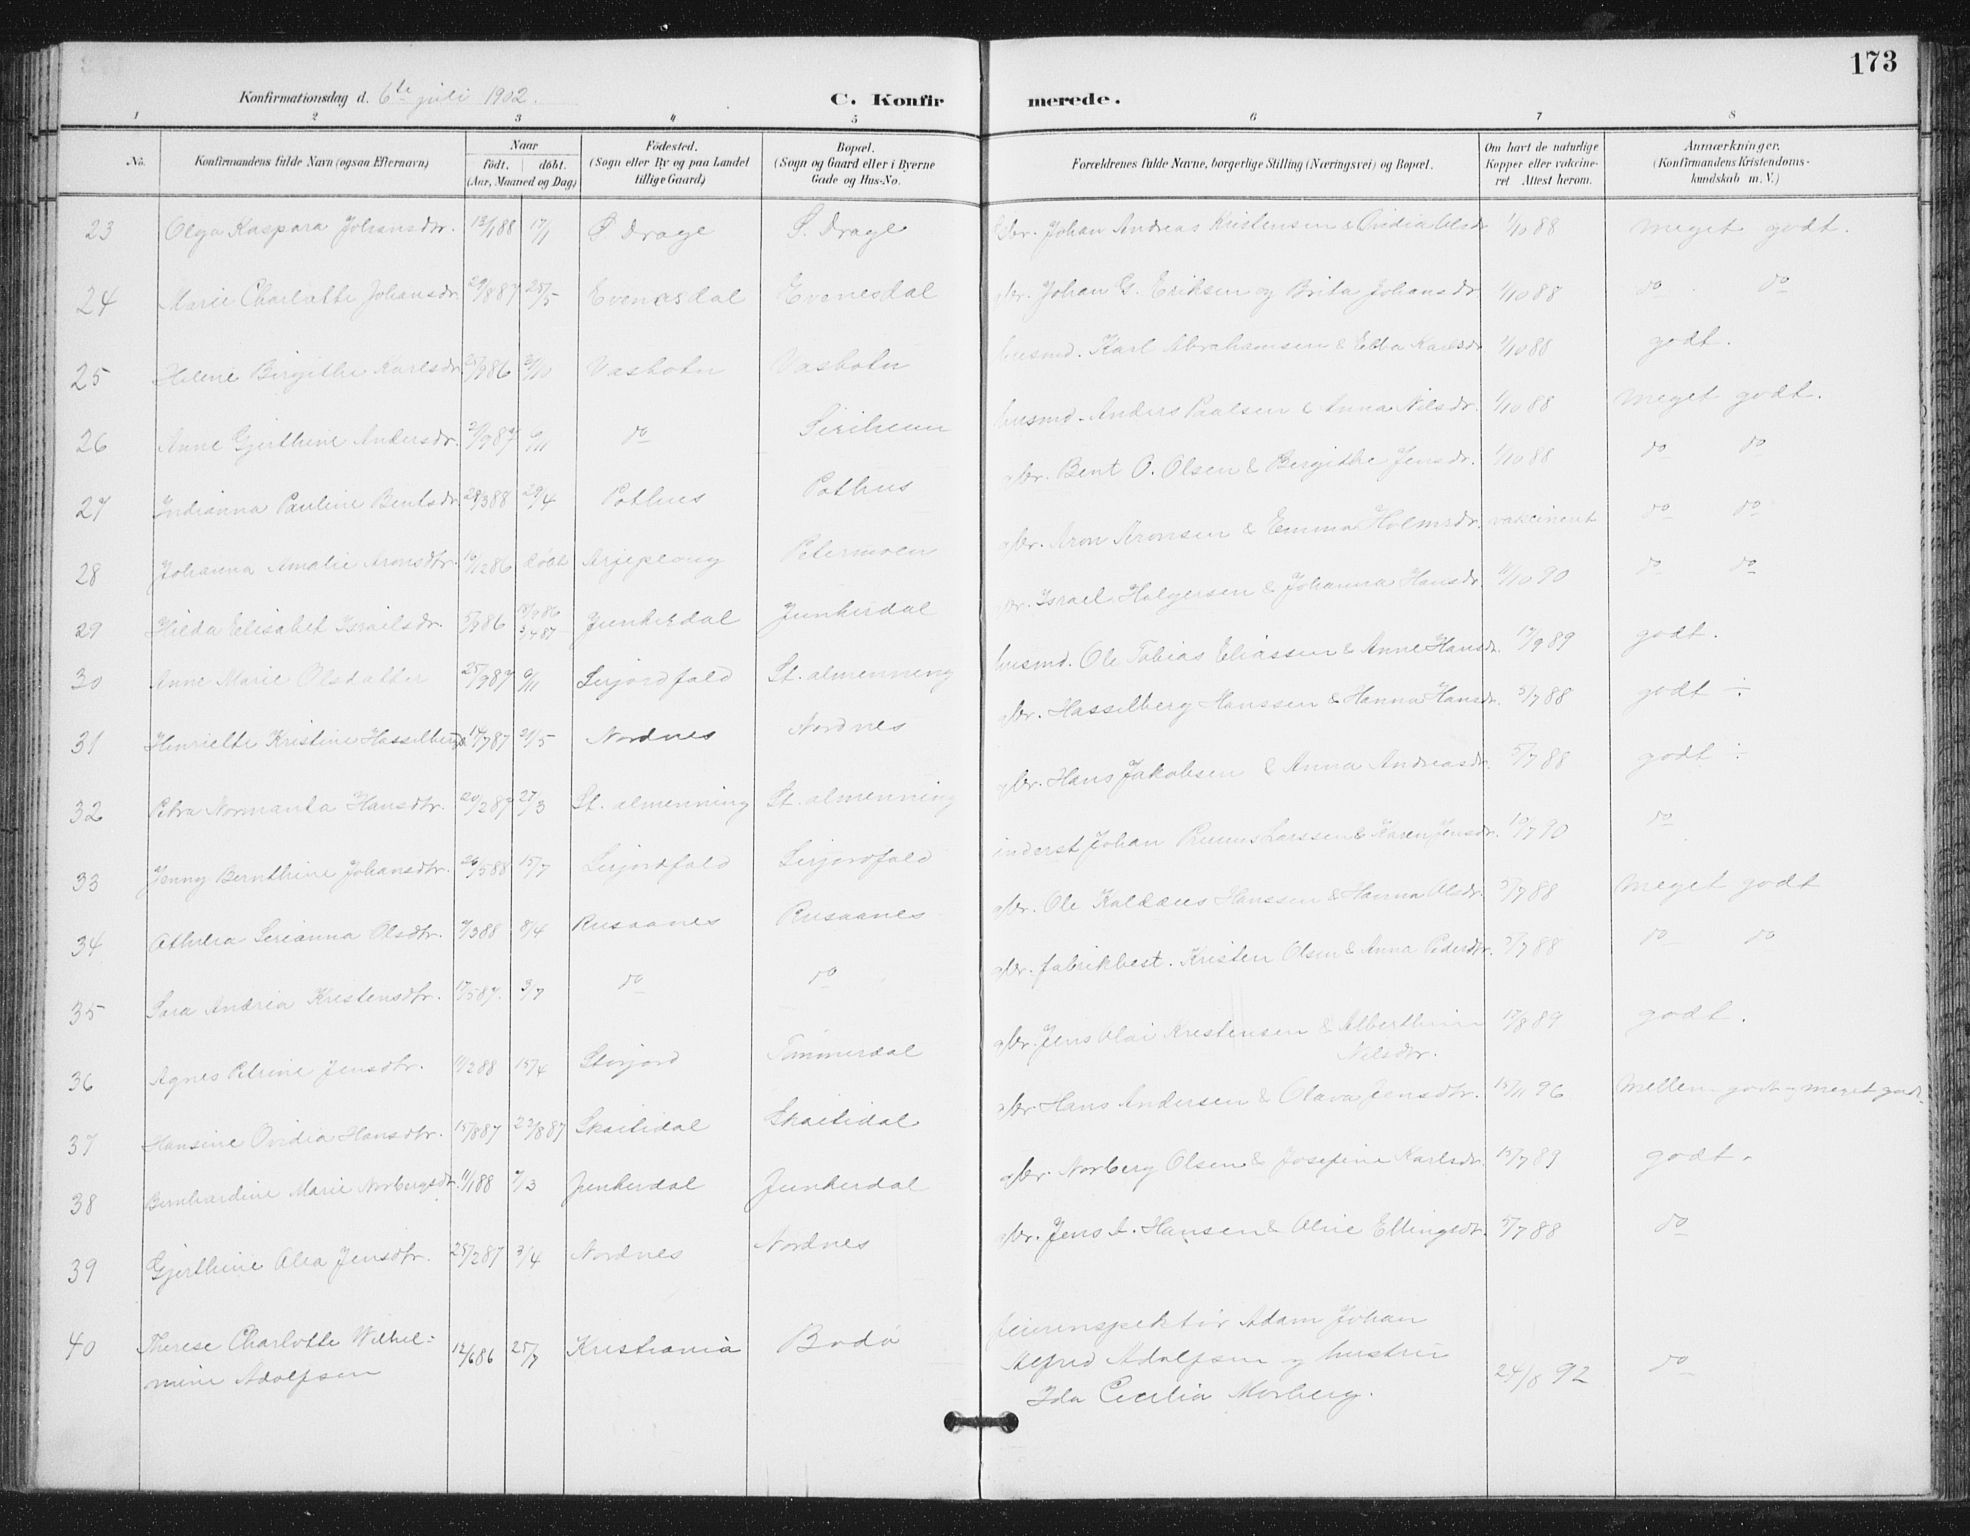 173
Konfirmationsdag d. 6te juli 1902.
C. Konfirmerede.
1 2 3 4 5 6 7 8
No. Konfirmandens fulde Navn (ogsaa Efternavn) Naar födt. döbt. (Aar, Maaned og Dag) Födested. (Sogn eller By og paa Landet tillige Gaard) Bopæl. (Sogn og Gaard eller i Byerne Gade og Hus-No. Forældrenes fulde Navne, borgerlige Stilling (Næringsvei) og Bopæl. Om havt de naturlige Kopper eller vakcineret Attest herom. Anmærkninger. (Konfirmandens Kristendomskundskab m. V.)
23 Olga Kaspara Johansdtr. 13/1 88 17/1 S. Drage S. Drage Johan Andreas Kristensen & Ovidia 1/10 88 meget godt.
24 Marie Charlotte Johansdr. 29/8 87 Evenesdal Evenesdal gbr. Johan G. Eriksen og Brita Johansdr 1/10 88 do do
25 Helene Birgithe Karlsdr. 9 86 /10 Vasbotn Vasbotn husmd. Karl Abrahamsen & Ebba Karlsdr 1/10 88 godt.
26 Anne Gjerthine Andersdr. 9 87 6/11 do husmd. Anders Paalsen & Anna Nilsdr. 1/10 88 meget godt.
27 Indianna Pauline Bentsdr. 3 88 29/4 Pothus Pothus gbr. Bent O. Olsen & Bergithe Jensdr. 1/10 88 do do
28 Johanna Amalie Aronsdtr. 12 86 döbt Arjeplong Petermoen gbr. Aron Aronsen & Emma Holmsdr. vakcineret do do
29 Hilda Elisabet Israelsdr. 86 Junkerdal Junkerdal gbr. Israel Holgersen & Johanna Hansdr. 11/10 90 do do
30 Anne Marie Olsdatter 25/9 87 6/11 Lerjordfald St. almenning husmd. Ole Tobias Eliassen & Anne Hansdr. 17/9 89 godt.
31 Henriette Kristine Hasselbergsd 87 /5 Nordnes Nordnes gbr. Hasselberg Hanssen & Hanna Hansdr. 5/7 88 godt ÷
32 Petra Normanta Hansdtr. 20/2 87 27/3 St. almenning St. almenning gbr. Hans Jakobsen & Anna Andreasdr. 5/7 88 godt ÷
33 Jenny Bernthine Johansdtr. 26/5 88 15/7 Lerjordfald Lerjordfald inderst Johan Larssen & Karen Jensdr. 7 90 do
34 Serianna Olsdtr. 3 88 8/4 Rusaanes Rusaanes gbr. Ole Kaldæus Hanssen & Hanna Olsdr. 5/7 88 meget godt
35 Sara Andrea Kristensdtr. 17/5 87. 3/7 do do gbr. fabrikbest. Kristen Olsen & Anna Pedersdtr. 5/7 88 do do
36 Agnes Petrine Jensdtr. 11/2 88 15/4 Storjord Tømmerdal gbr. Jens Olai Kristensen & Alberthine Nilsdtr. 17/8 89 godt.
37 Hansine Ovidia Hansdtr. 15/8 87 23/8 87 Skaitidal Skaitidal gbr. Hans Andersen & Olava Jensdtr. 15/11 96 mellem godt og meget godt.
38 Bernhardine Marie Norbergsdtr. 11/1 88 /3 Junkerdal Junkerdal gbr. Norberg Olsen & Josefine Karlsdr. 15/7 89 godt.
39 Gjerthine Olea Jensdtr. 25/2 87 3/4 Nordnes Nordnes gbr. Jens A. Hansen & Oline Ellingsdtr. 5/7 88 do
40 Therese Charlotte Wilhelmine Adolfsen 12/6 86 25/7 Kristiania Bodö feierinspektör Adam Johan
Alfred Adolfsen og hustru
Ida Cecilia Morberg. 24/8 92 do